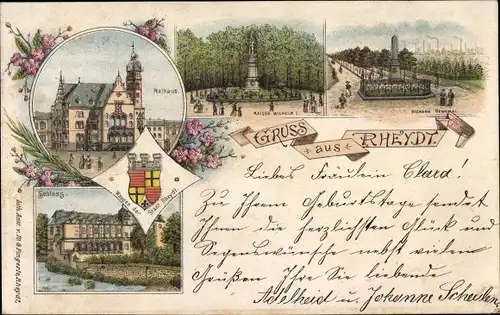 Rathaus.
KAISER WILHELM I
BISMARK DENKMAL
GRUSS aus RHEYDT.
Liebes Fräulein Clara!
Zu Ihrem Geburtstage sendet
Ihnen die herzlichsten Glück und
Segenswünsche nebst vielen
Grüßen Ihre Sie liebende
Adelheid u. Johanne
Wappen der Stadt Rheydt.
Schloss.
Lith. Anst. v.
Rheydt.